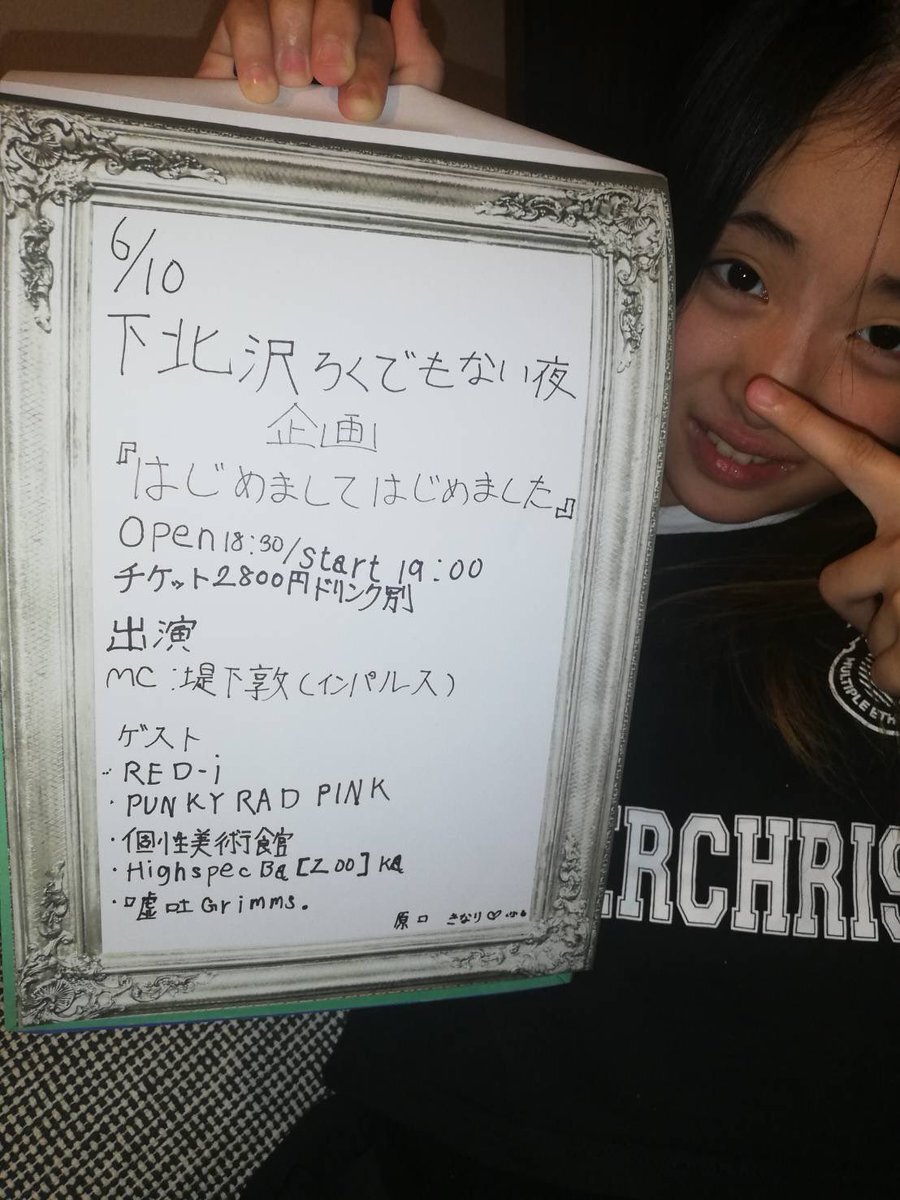 6/10
下北沢ろくでもない夜
企画
『はじめましてはじめました』
Open18:30/start 19:00
チケット2800円ドリンク別
出演
MC:堤下敦(インパルス)
ゲスト
・RED-i
・PUNKY RAD PINK
・個性美術館
・Highspec Ba [Z00] Ka
・嘘吐Grimms.
原口 きなり♡
MULTIPLE ETH
ERCHRIS